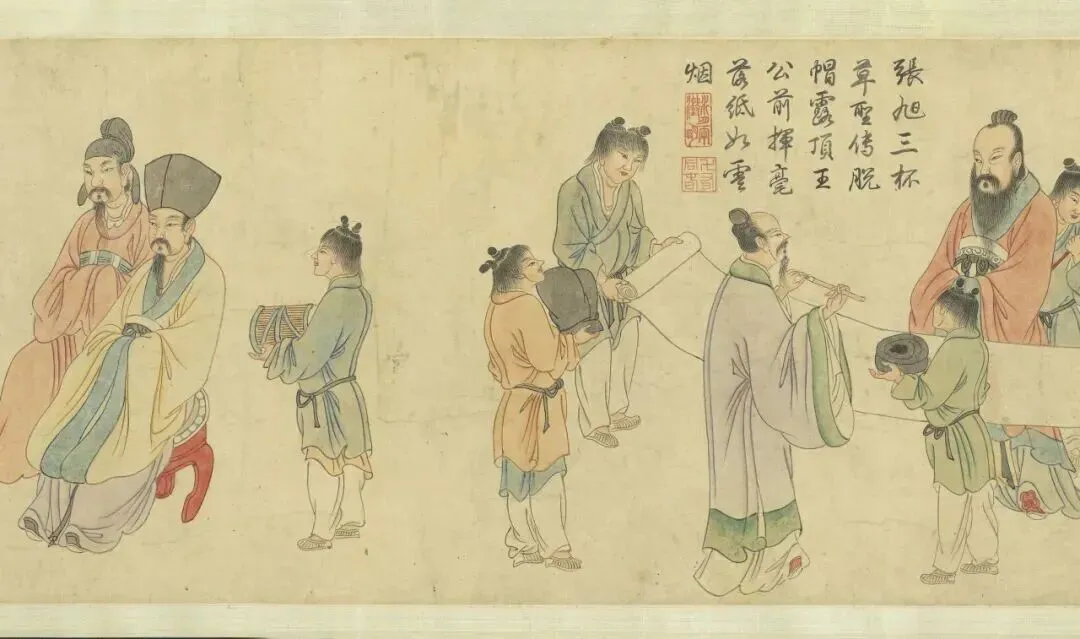 張旭三杯
草聖传脱
帽露頂王
公前揮毫
落紙如雲
烟